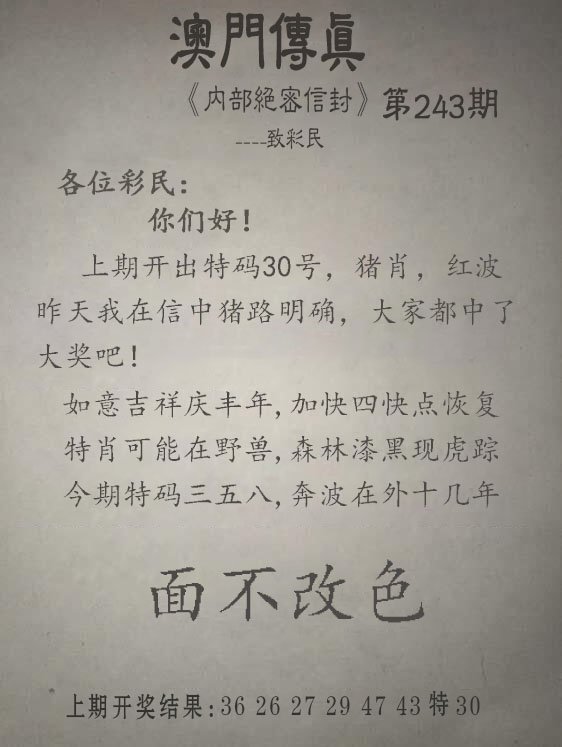 澳門傳眞
《内部絕密信封》第243期
----致彩民
各位彩民：
你们好！
上期开出特码30号，猪肖，红波
昨天我在信中猪路明确，大家都中了
大奖吧！
如意吉祥庆丰年,加快四快点恢复
特肖可能在野兽,森林漆黑现虎踪
今期特码三五八,奔波在外十几年
面不改色
上期开奖结果:36 26 27 29 47 43 特30